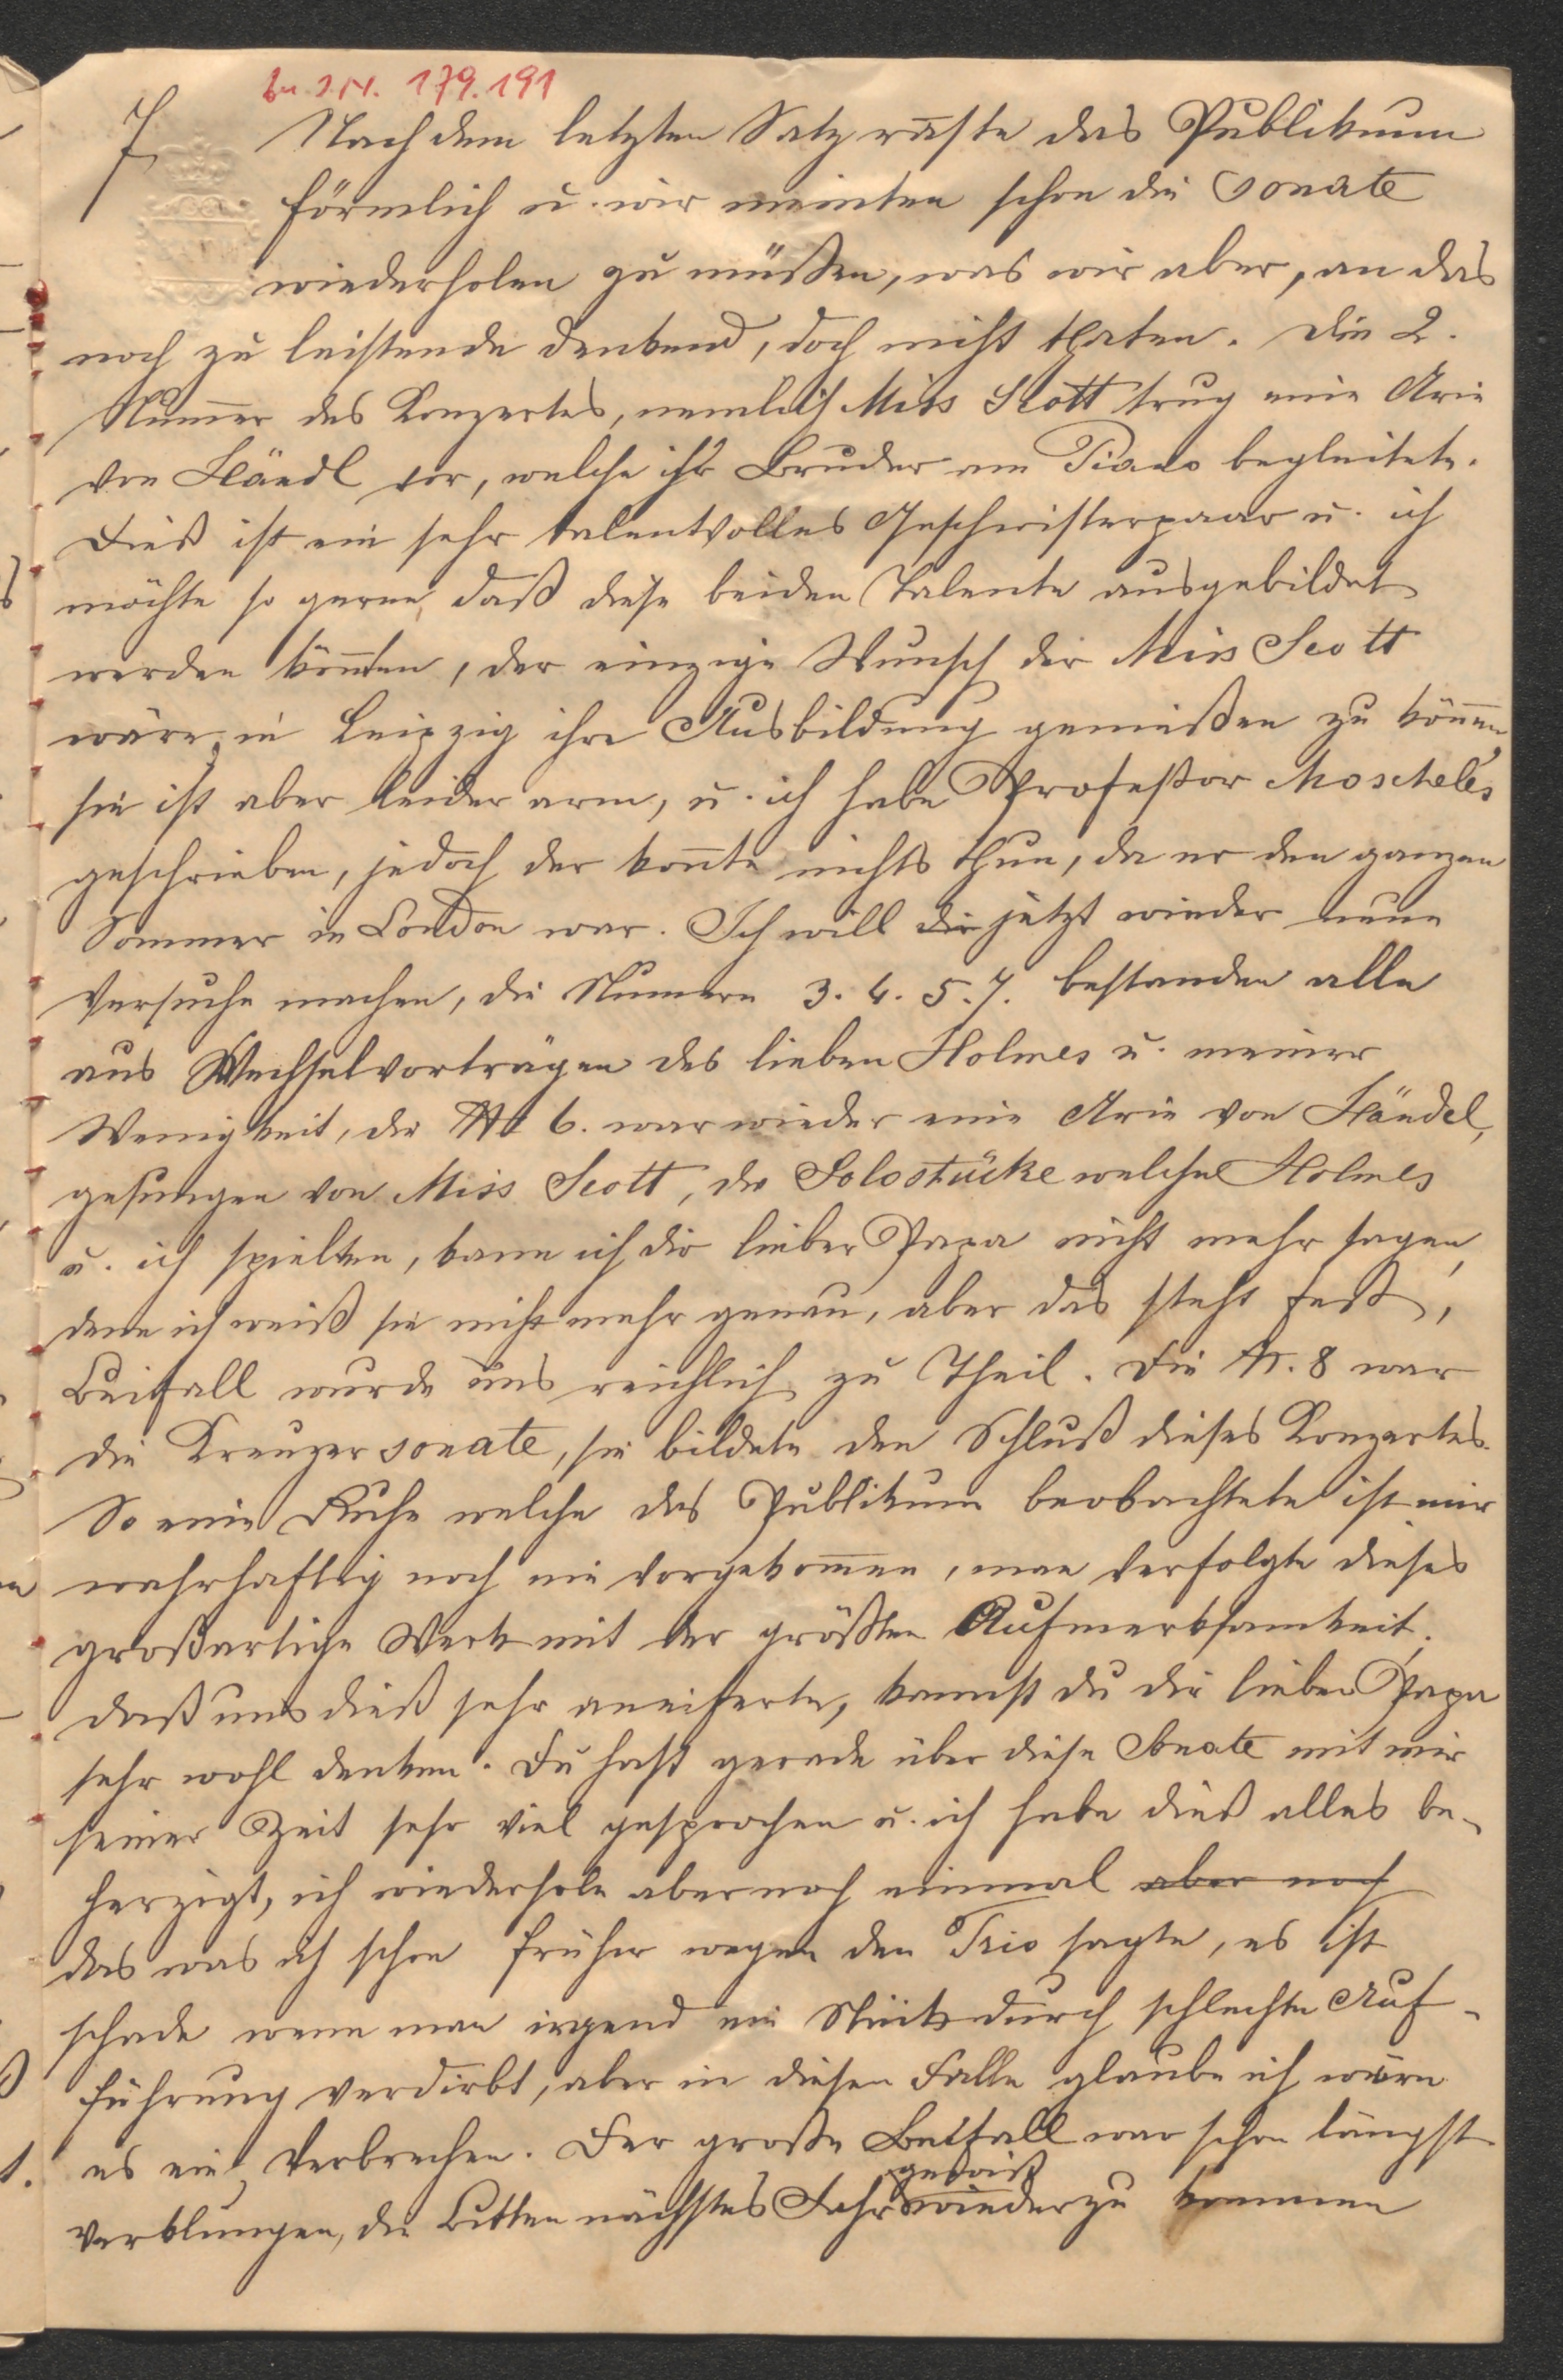 Zu I.N. 179.191
7
Nach dem letzten Satz raste das Publikum
förmlich u. wir meinten schon die Sonate
wiederholen zu müßen, was wir aber, an das
noch zu leistende denkend, doch nicht thaten. Die 2.
Num̅er des Konzertes, nemlich Miss Scott trug eine Arie
von Händl vor, welche ihr Bruder am Piano begleitete.
Dieß ist ein sehr talentvolles Geschwisterpaar u. ich
möchte so gerne, daß diese beiden Talente ausgebildet
werden kön̅ten, der einzige Wunsch der Miss Scott
wäre, in Leipzig ihre Ausbildung genießen zu kön̅en,
sie ist aber leider arm, u. ich habe Profeßor Moscheles
geschrieben, jedoch der kon̅te nichts thun, da er den ganzen
Sommer in London war. Ich will die jetzt wieder neue
Versuche machen, die Numern 3. 4. 5. 7. bestanden alle
aus Wechselvorträgen des lieben Holmes u. meiner
Wenigkeit, die No 6. war wieder eine Arie von Händel,
gesungen von Miss Scott, die Solostücke welche Holmes
u. ich spielten, kann ich dir lieber Papa nicht mehr sagen,
denn ich weiß sie nicht mehr genau, aber das steht fest,
Beifall wurde uns reichlich zu Theil. Die Nr. 8 war
die Kreuzersonate, sie bildete den Schluß dieses Konzertes.
So eine Ruhe welche das Publikum beobachtete ist mir
wahrhaftig noch nie vorgekom̅en, man verfolgte dieses
großartige Werk mit der größten Aufmerksamkeit,
daß uns dieß sehr aneiferte, kannst du dir lieber Papa
sehr wohl denken. Du hast gerade über diese Sonate mit mir
seiner Zeit sehr viel gesprochen u. ich habe dieß alles be-
herzigt, ich wiederhole aber noch einmal aber noch
das was ich schon früher wegen den Trio sagte, es ist
schade wenn man irgend ein Stück durch schlechte Auf-
führung verdirbt, aber in diesen Falle glaube ich wäre
es ein Verbrechen. Der große Beifall war schon längst
gewiß
verklungen, die Bitten nächstes Jahr wieder zu kommen